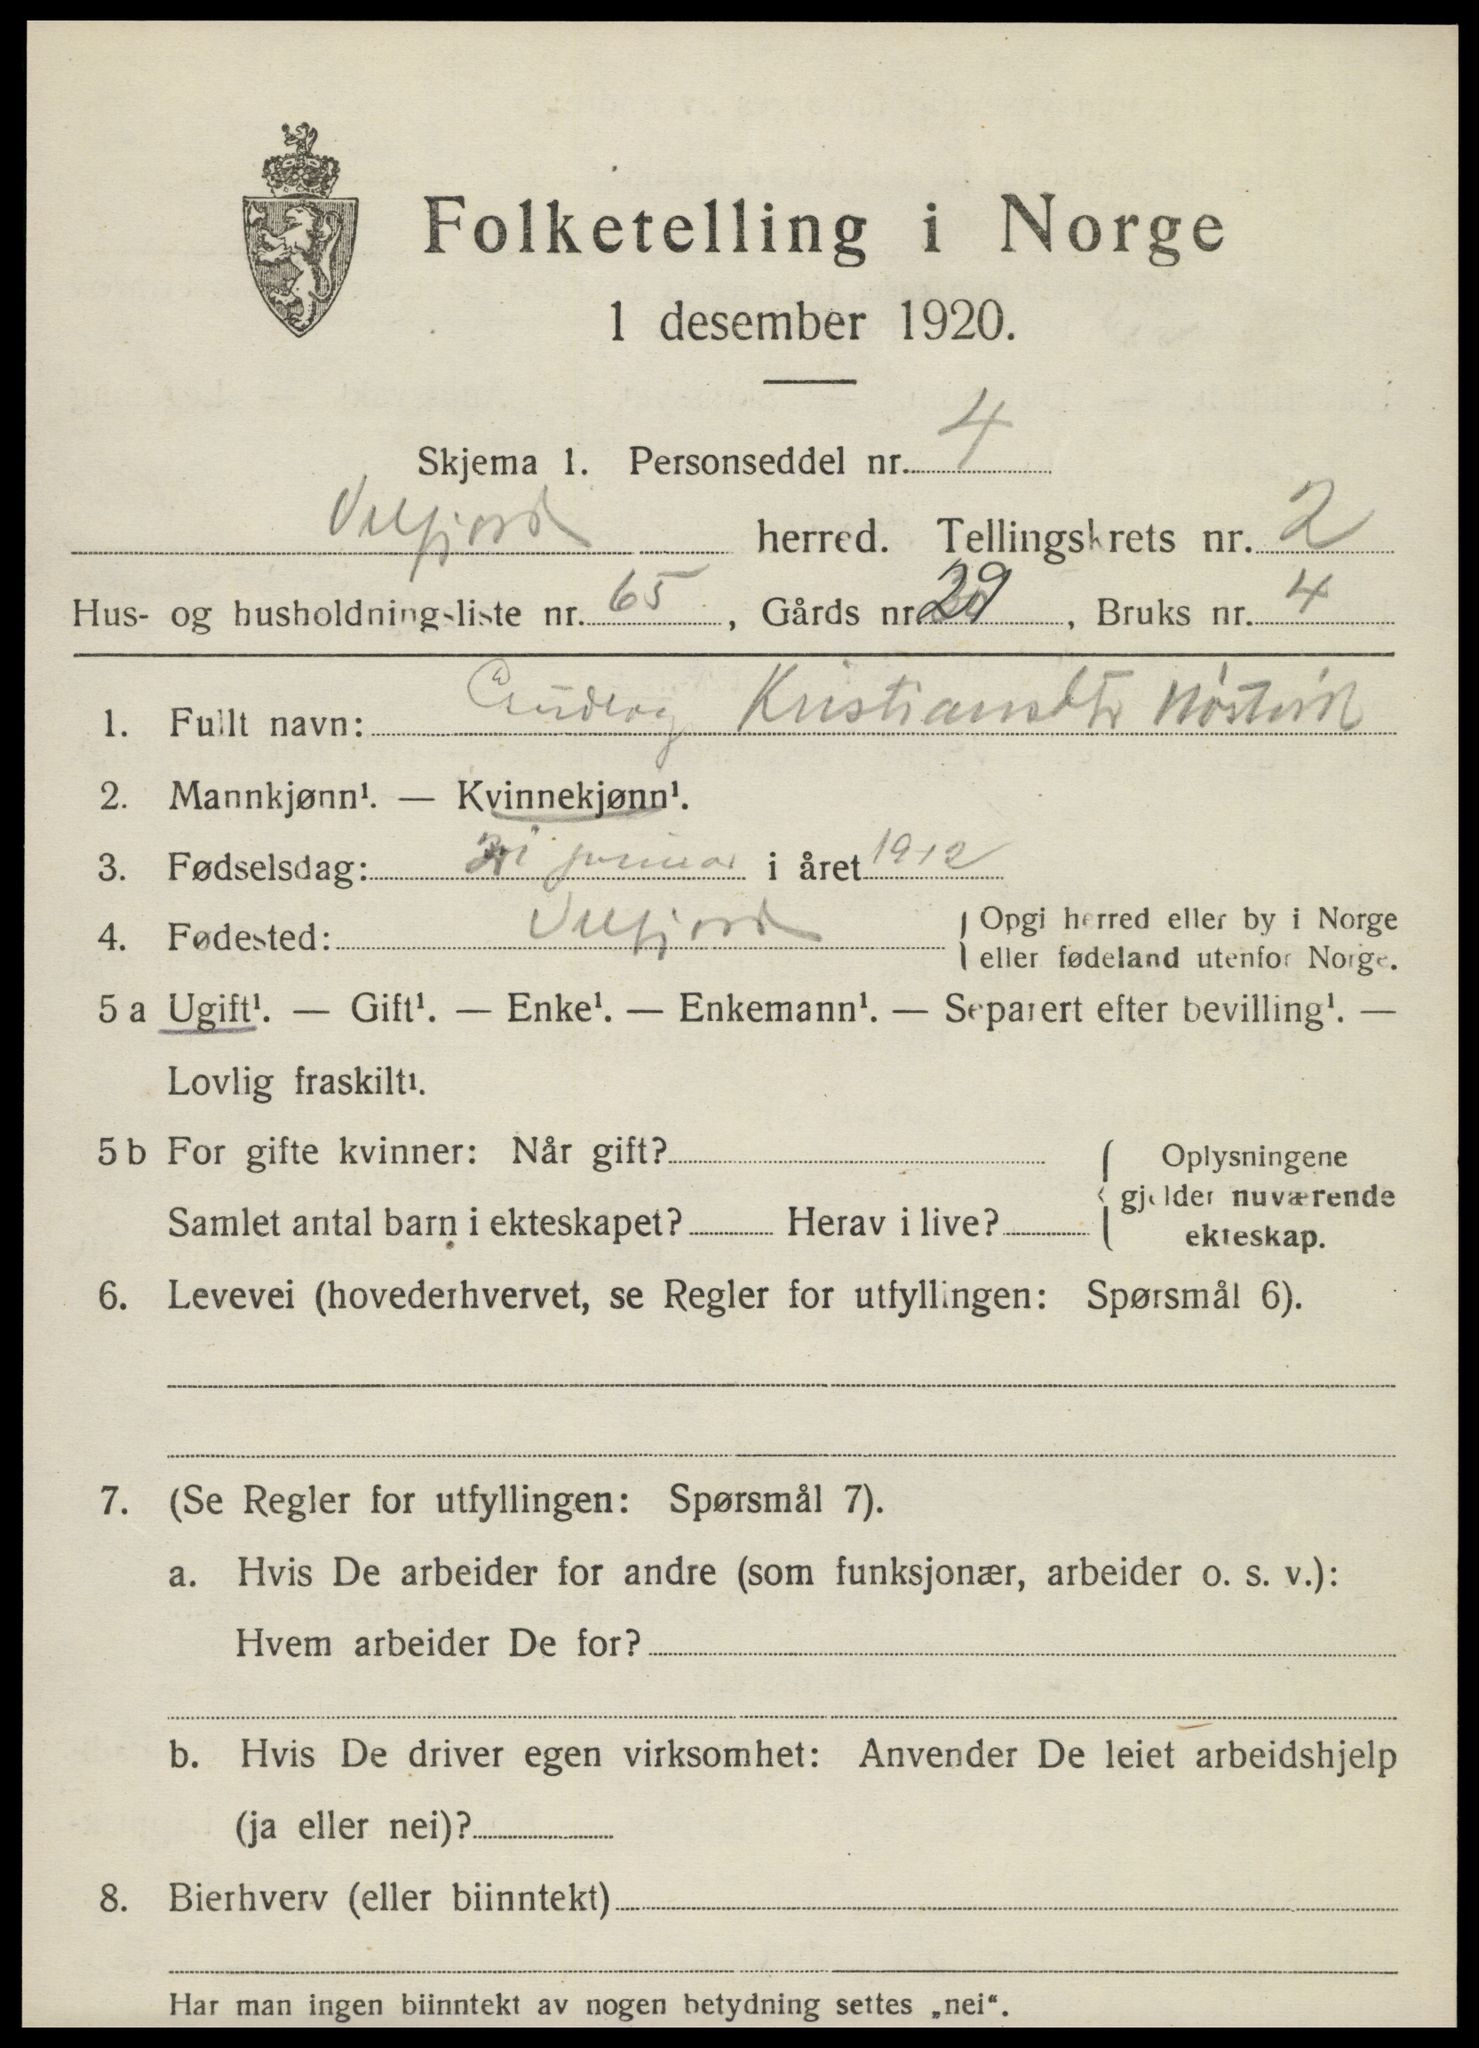 Folketelling i Norge
1 desember 1920.
Skjema 1. Personseddel nr. 4
Velfjord herred. Tellingskrets nr. 2
Hus- og husholdningsliste nr. 65, Gårds nr. 29, Bruks nr. 4
1. Fullt navn: Kristiansdtr
2. Mannkjønn¹. — Kvinnekjønn¹.
3. Fødselsdag: januar i året 1912
4. Fødested: Velfjord { Opgi herred eller by i Norge
eller fødeland utenfor Norge.
5 a Ugift¹. — Gift¹. — Enke¹. — Enkemann¹. — Separert efter bevilling¹. —
Lovlig fraskilt¹.
5 b For gifte kvinner: Når gift? { Oplysningene
gjelder nuværende
Samlet antal barn i ekteskapet? Herav i live? ekteskap.
6. Levevei (hovederhvervet, se Regler for utfyllingen: Spørsmål 6).
7. (Se Regler for utfyllingen: Spørsmål 7).
a. Hvis De arbeider for andre (som funksjonær, arbeider o. s. v.):
Hvem arbeider De for?
b. Hvis De driver egen virksomhet: Anvender De leiet arbeidshjelp
(ja eller nei)?
8. Bierhverv (eller biinntekt)
Har man ingen biinntekt av nogen betydning settes „nei“.